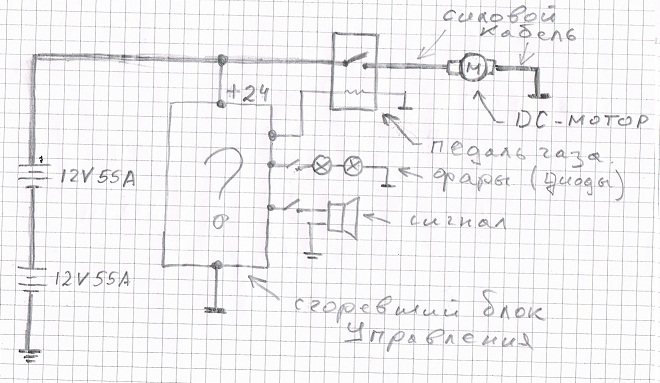 силовой
кабель
+24
M
DC-мотор
педаль газа.
12V55A
фары (диоды)
?
сигнал
12V55A
сгоревший блок
управления